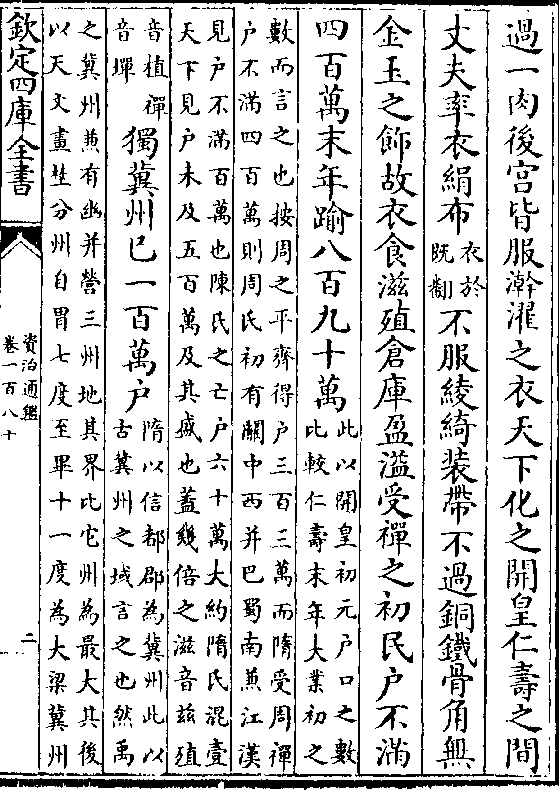 過一肉後宫皆服澣濯之衣天下化之開皇仁壽之間
丈夫率衣絹布衣於既翻不服綾綺装帶不過銅鐵骨角無
金玉之飾故衣食滋殖倉庫盈溢受禪之初民户不滿
四百萬末年踰八百九十萬此以開皇初元户口之數比較仁壽末年大業初之
數而言之也按周之平齊得户三百三萬而隋受周禪
户不滿四百萬則周氏初有關中西并巴蜀南兼江漢
見户不滿百萬也陳氏之亡户六十萬大約隋氏混壹
天下見户未及五百萬及其盛也蓋幾倍之滋音兹殖
音植禪
音墠
獨冀州已一百萬户隋以信都郡為冀州此以古冀州之域言之也然禹
之冀州兼有幽并營三州地其界比它州為最大其後
以天文畫壄分州自胃七度至畢十一度為大梁冀州
欽定四庫全書
資治通鑑
卷一百八十
二